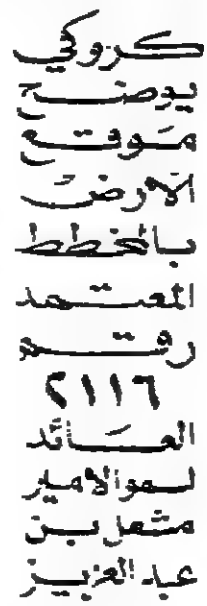 كروكي
يوضح
موقع
الأرض
بالمخطط
المعتمد
رقم
٢١١٦
العائد
لسمو الأمير
مشعل بن
عبد العزيز